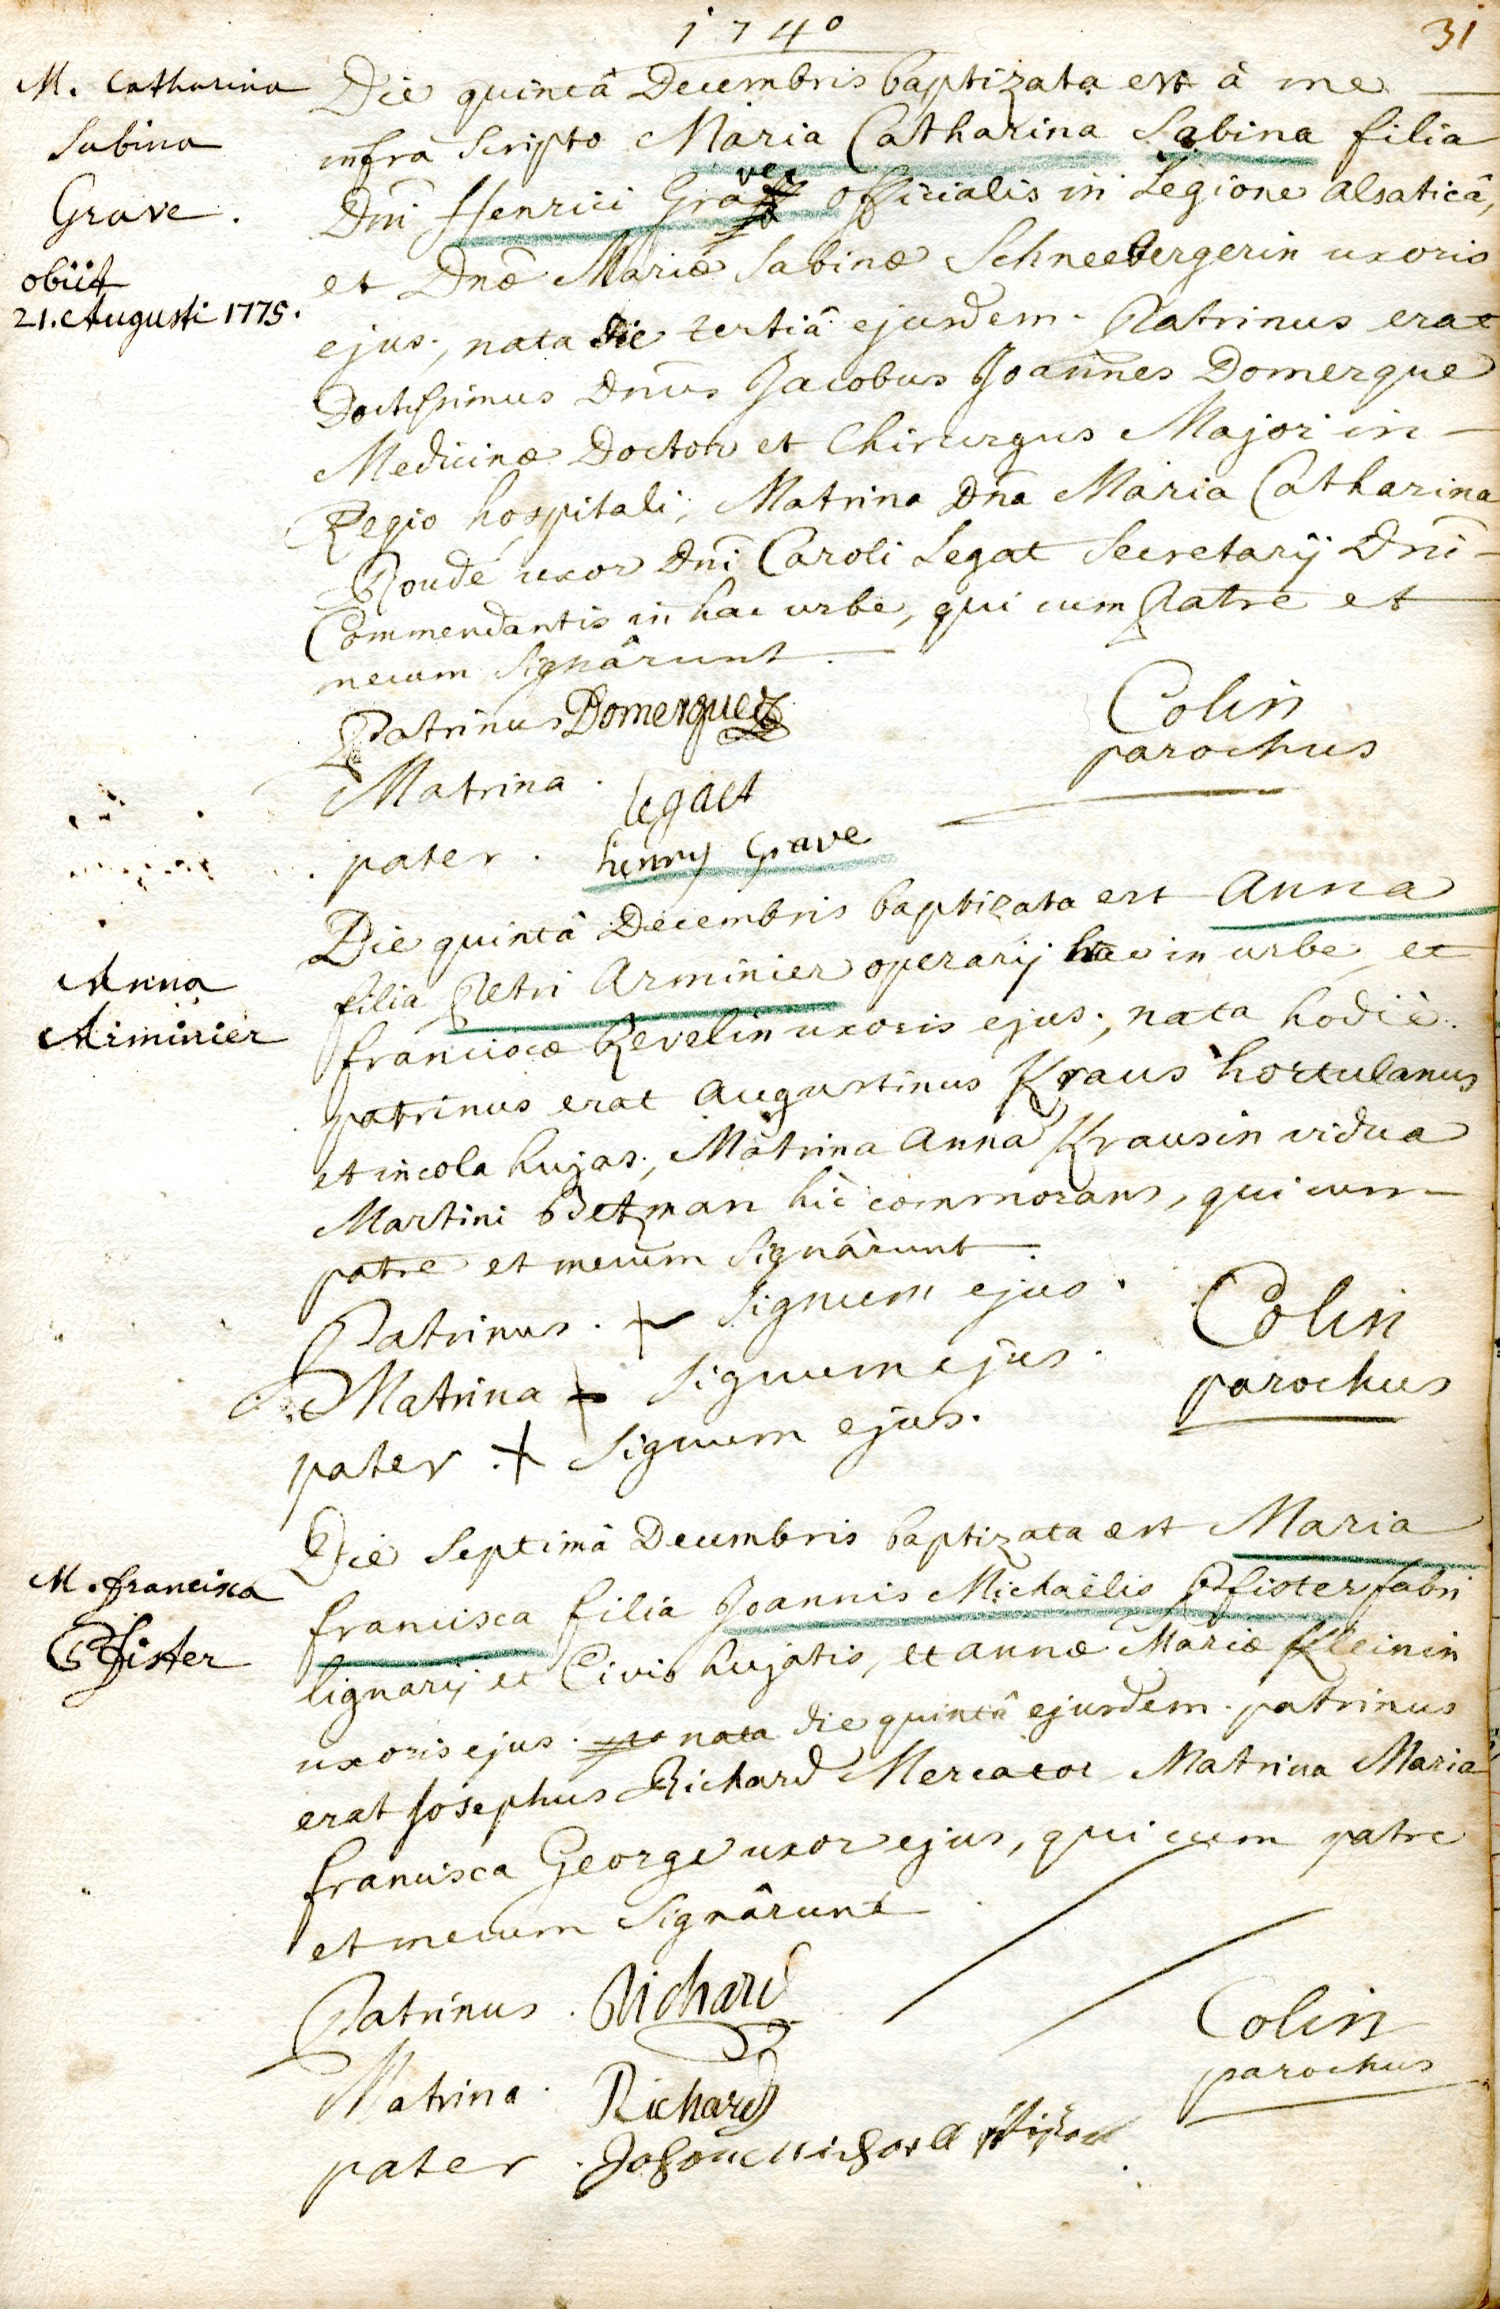 1740
31
M. Catharina
Sabina
Grave.
obiit
21. Augusti 1775.
Die quintâ Decembris baptizata est à me
infrà Scripto Maria Catharina Sabina filia
Dni Henrici Grave officialis in Legione alsaticâ,
et Dnae Mariae Sabinae Schneebergerin uxoris
ejus, nata die tertiâ ejusdem. Patrinus erat
Doctissimus Dnus Jacobus Joannes Domergue
Medicinae Doctor et Chirurgus Major in
Regio hospitali, Matrina Dna Maria Catharina
Roudé uxor Dni Caroli Legat Secretarij Dni
Commendantis in hac urbe, qui cum Patre et
mecum Signârunt.
Patrinus Domergue
Matrina. legaet
pater. henry Grave
Colin
parochus
Anna
Arminier
Die quintâ Decembris baptizata est Anna
filia Petri Arminier operarij hac in urbe, et
franciscae Revelin uxoris ejus, nata hodiè.
patrinus erat augustinus Kraus hortulanus
et incola hujas, Matrina Anna Krausin vidua
Martini Betzman hîc commorans, qui cum
patre et mecum Signârunt.
Patrinus. + Signum ejus.
Matrina + Signum ejus.
pater. + Signum ejus.
Colin
parochus
M. francisca
Pfister
Die Septimâ Decembris baptizata est Maria
francisca filia Joannis Michaëlis Pfister fabri
lignarij et Civis hujatis, et annae Mariae Kleinin
uxoris ejus. nata die quintâ ejusdem. patrinus
erat Josephus Richard Mercator Matrina Maria
francisca George uxor ejus, qui cum patre
et mecum Signârunt
Patrinus. Richard
Matrina. Richard
pater. Johann Michaell Pfister
Colin
parochus